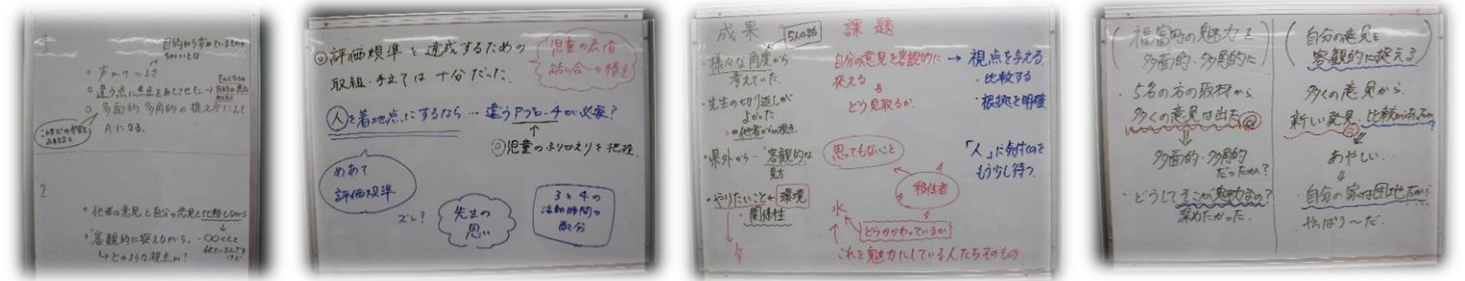 1
目的から求めているものの
ちがいとは
・声かけ つぶさ
・違う点に焦点をあてさせた→
・多面的・多角的の捉え方によって
Aになる。
2
・他者の意見と自分の意見と比較しながら
・客観的に捉えながら、・〇〇さんと
↳どのような視点か?
評価規準を達成するための
取組・手立ては十分だった。
児童の表情
話し合いの様子
人を着地点にするなら…違うアプローチが必要?
↑
児童のふりかえりを把握
めあて
評価規準
ズレ?
先生の
思い
3と4の
活動時間の
配分
成果
5人の話
・様々な角度から
考えていた。
・先生の切り返しが
よかった
の他者からの視点
・県外から…客観的な
見方
・やりたいこと←環境
・関係性
課題
自分の意見を客観的に
捉える
どう見取るか。
→視点を与える
・比較する
・根拠を明確
思ってもないこと
「人」に気付くのを
もう少し待つ。
移住者
水
どうかかわっているか
これを魅力にしている人たちそのもの
福富町の魅力を
多面的・多角的に
・5名の方の取材から
多くの意見は出た
多面的・多角的
だったか?
・どうしてそこが魅力なの?
深めたかった。
自分の意見を
客観的に捉える
多くの意見から
新しい発見、比較があったか
あやしい…
・自分の家は団地だから
やっぱり〜だ。